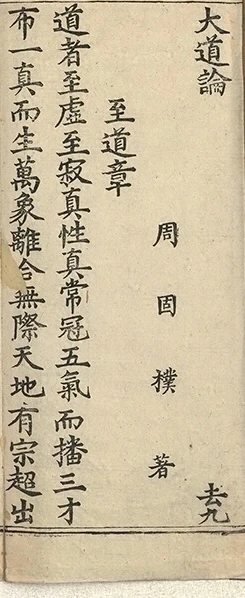 大道論 去九
周固樸著
至道章
道者至虛至寂真性真常冠五氣而播三才
布一真而生萬象離合無際天地有宗超出